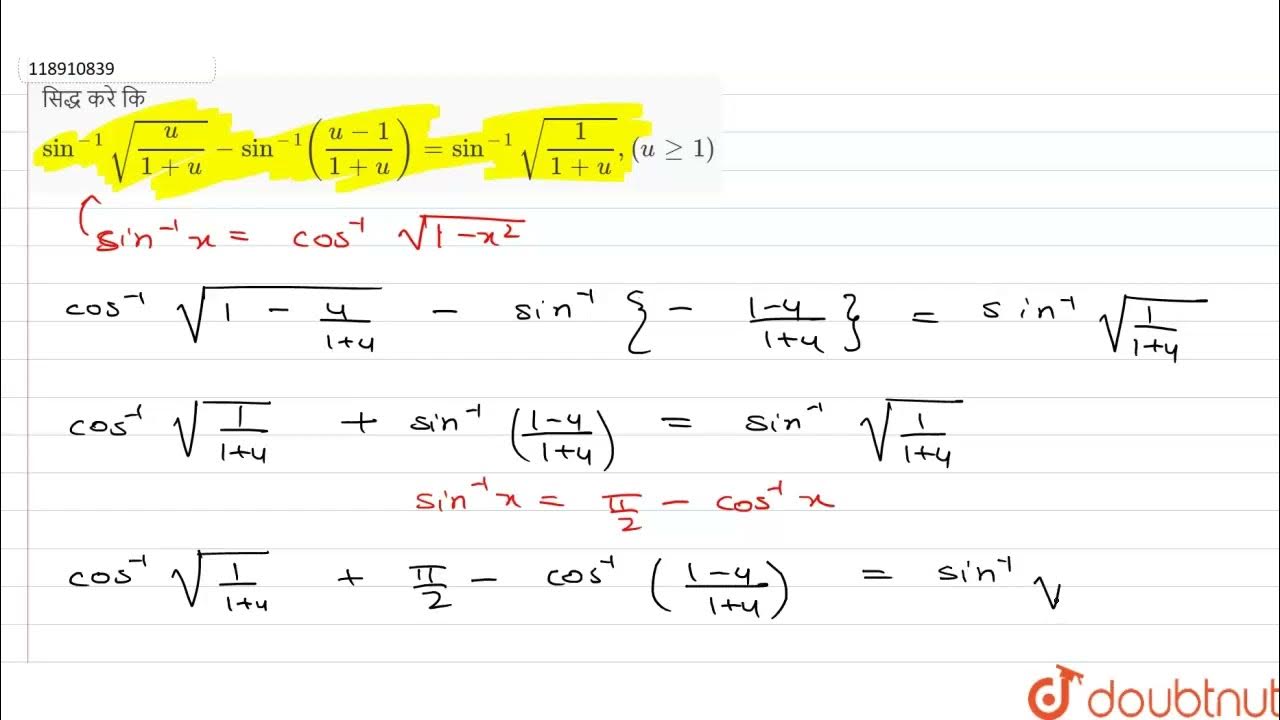 118910839
सिद्ध करे कि
sin⁻¹ √(u/(1+u)) − sin⁻¹((u−1)/(1+u)) = sin⁻¹ √(1/(1+u)), (u ≥ 1)
sin⁻¹ x = cos⁻¹ √(1−x²)
cos⁻¹ √(1 − u/(1+u)) − sin⁻¹ {− (1−u)/(1+u)} = sin⁻¹ √(1/(1+u))
cos⁻¹ √(1/(1+u)) + sin⁻¹ ((1−u)/(1+u)) = sin⁻¹ √(1/(1+u))
sin⁻¹ x = π/2 − cos⁻¹ x
cos⁻¹ √(1/(1+u)) + π/2 − cos⁻¹ ((1−u)/(1+u)) = sin⁻¹ √
doubtnut